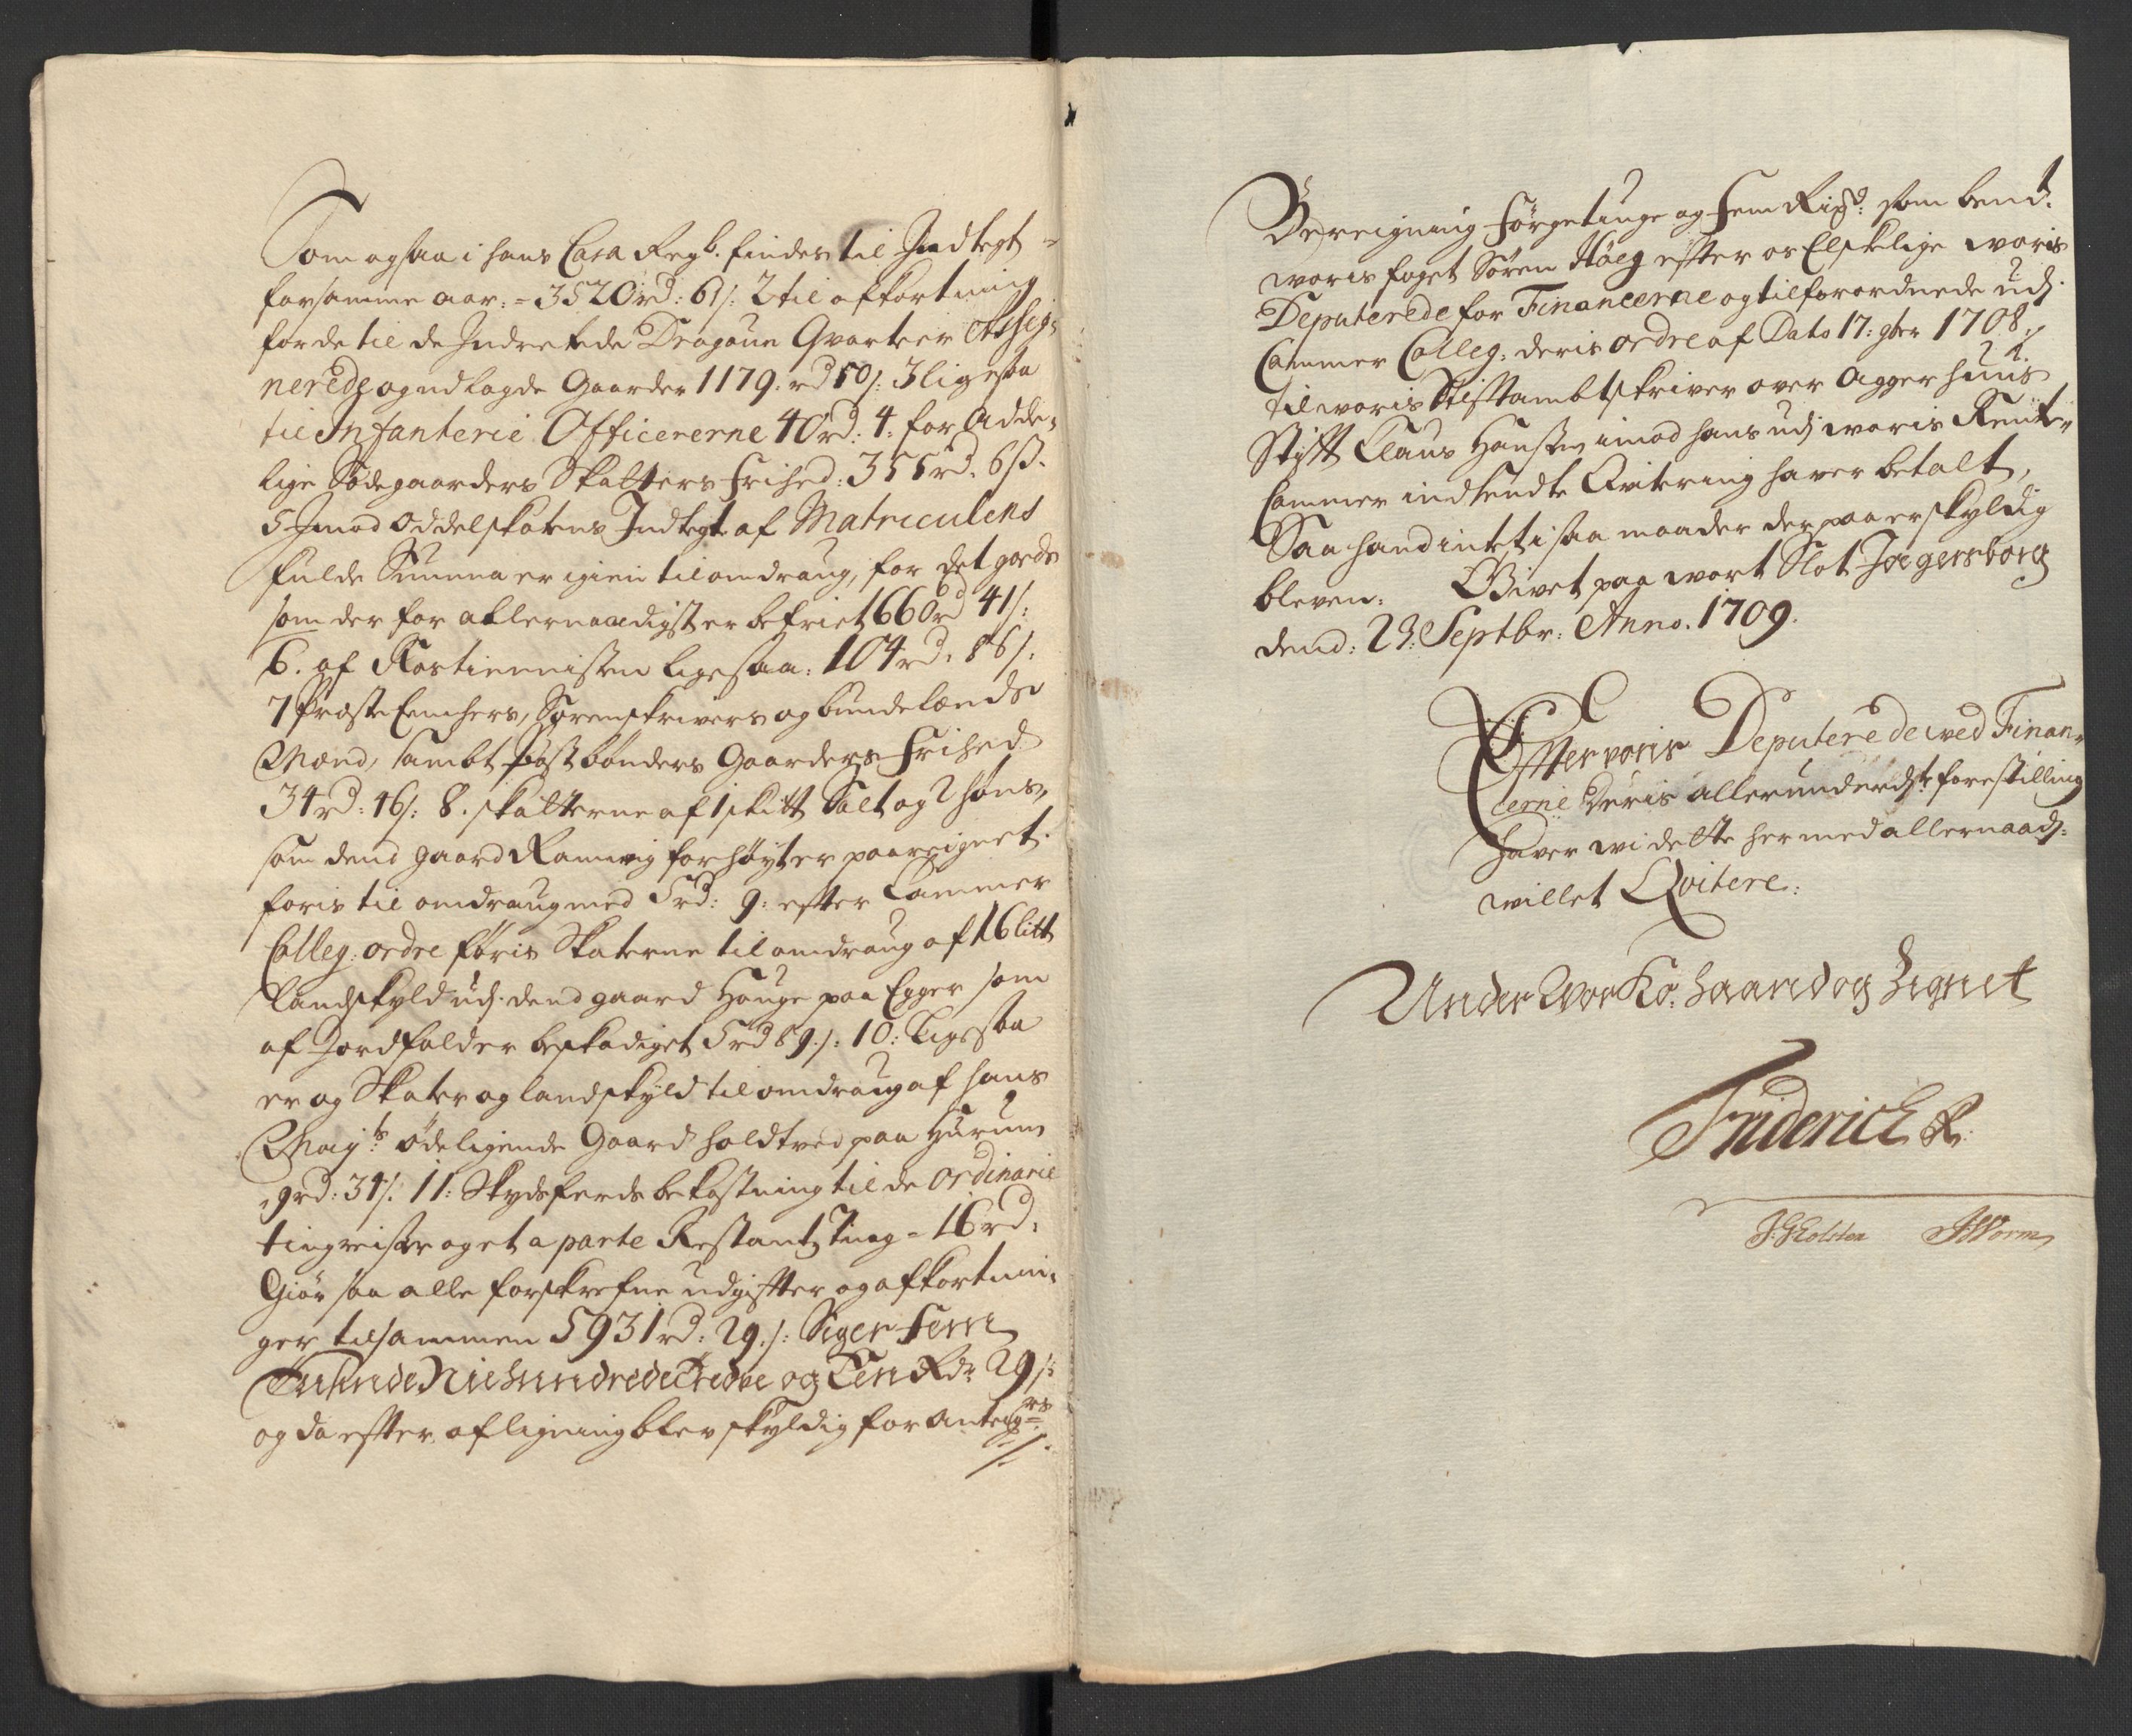 Som ogsaa i hans Casa Regb. findes til Indtegt
for samme aar: = 3520 rd: 61 s: 2 til afkortning
for de til de Indretede Dragoun Qvarteer Assig-
nerede og udlagde Gaarder 1179. rd 50 s: 3 ligesaa
til Infanterie Officererne 40 rd: 4: for Adde-
lige Sædegaarders Skatters Frihed: 355 rd. 6 s.
5 Imod Oddelskatens Indtegt af Matriculens
fulde Summa er igien til omdraug, for det gods
som der for allernaadigst er befriet 660 rd 41 s:
6. af Rostiennisten ligesaa: 104 rd. 86 s.
7 Præste Enchers, Sorenskrivers og bunde lænds
Mænd, sambt Postbønders Gaarders Frihed
34 rd: 46 s: 8. skatterne af 1 skitt Salt og 2 høns,
som dend gaard Ramvig forhøyt er paareignet
føris til omdraug med 5 rd: 9: efter Cammer
Colleg: ordre føris Skaterne til omdraug af 16 litt
Landskyld udj. dend gaard Houge paa Egger som
af Jordfalder beskadiget 5 rd 89 s: 10: Ligesaa
er og Skater og landskyld til omdraug af hans
Mayts: øde ligende Gaard Holdtved paa Hurum
9 rd: 34 s. 11: Skydsferds bekostning til de ordinarie
tingreiser og et a parte Restantz Ting = 16 rd.
Giør saa alle forskrefne udgifter og afkortnin-
ger tilsammen 5931 rd: 29 s: Siger Fem
Tusinde Niehundrede Tredve og Een Rdr 29 s:
og da efter afligning blev skyldig for Antegnrs
Bereigning Førgetiuge og Fem Rixd: som bemt.
woris foged Søren Høeg efter os Elskelige woris
Deputerede for Financerne og tilforordnede udj
Cammer Colleg: deris ordre af Dato 17: 9ber 1708.
til woris Stiftambtskriver over Aggerhuus
Stift Claus Hansen imod hans udj woris Rente-
Cammer indsendte Qvitering haver betalt,
Saa hand intet i saa maader der paa er skyldig
bleven: Givet paa wort Slot Jægersborg
dend: 23: Septbr: Anno. 1709.
Efter voris Deputerede ved Finan-
cerne Deris allerunderdste forestilling
haver wi dette hermed allernaadj:
willet Qvitere:
Under Vor Ko: Haand og Zignet
Friderich R.
J. G. Holsten J. Worm